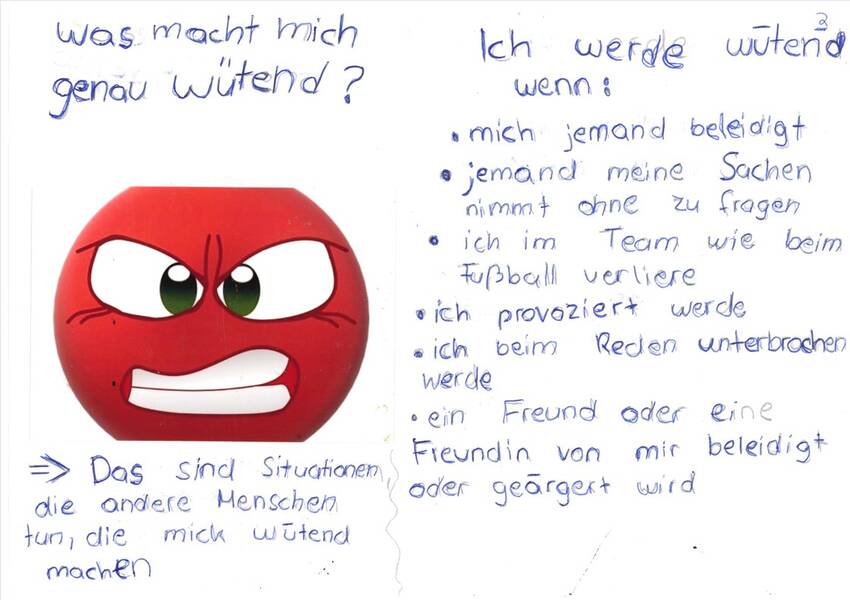 was macht mich
genau wütend?
⇒ Das sind Situationen,
die andere Menschen
tun, die mick wütend
machen
3
Ich werde wütend
wenn:
• mich jemand beleidigt
• jemand meine Sachen
nimmt ohne zu fragen
• ich im Team wie beim
Fußball verliere
• ich provoziert werde
• ich beim Reden unterbrochen
werde
• ein Freund oder eine
Freundin von mir beleidigt
oder geärgert wird